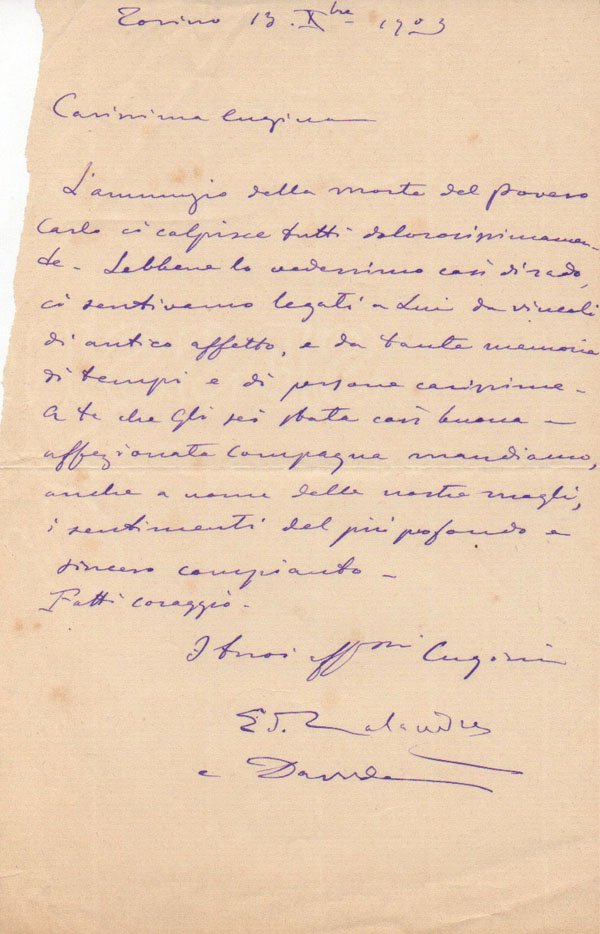 Torino 13. Xbre 1903
Carissima Cugina
L'annunzio della morte del povero
Carlo ci colpisce tutti dolorosissimamen-
te. Sebbene lo vedessimo così di rado,
ci sentivamo legati a Lui da vincoli
di antico affetto, e da tante memorie
di tempi e di persone carissime -
A te che gli sei stata così buona -
affezionata compagna mandiamo,
anche a nome delle nostre mogli,
i sentimenti del più profondo e
sincero compianto -
Fatti coraggio.
I tuoi affmi Cugini
Ed.
e Davide